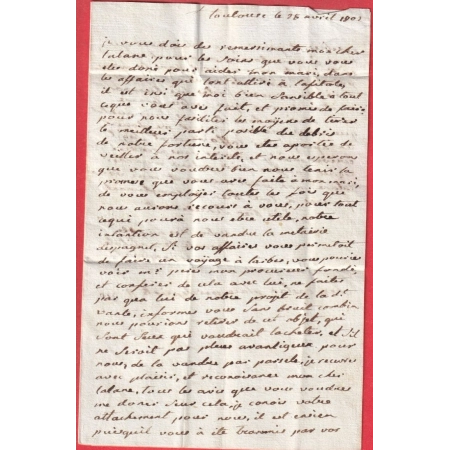 toulouse le 28 avril 1807
je vous dois des remersimants mon cher
talane, pour les soins que vous vous
etes doné pour aider mon mari, dans
les affaires qui l'ont attiré a
il est insi que moi bien sensible a tout
ceque vous avés fait, et promis de faire
pour nous faciliter les moyens de tirer
le meilleur parti posible des debris
de notre fortune, vous etes aportée de
veiller a nos interets, et nous esperons
que vous voudrés bien nous tenir la
promese que vous avés faite a mon mari,
de vous employer toutes les fois que
nous aurons recours a vous, pour tout
cequi poura nous etre utile, notre
intantion est de vandre la metairie
despagne, Si vos affaires vous permetoit
de faire un voyage a tarbes, vous pouriés
voir mr peres mon procureur fondé,
et conferer de cela avec lui, ne faites
part qua lui de notre projet de la
vante, informés vous sans bruit combien
nous pourions retirer de cet objet, qui
sont seux qui voudrait lacheter, et s'il
ne seroit pas plus avantajeux pour
nous, de la vandre par parsele, je recevrai
avec plaisir, et reconaisance mon cher
talane, tous les avis que vous voudrés
me doner sur cela, je conois votre
attachement pour nous, il est ensien
puisquil vous a ité transmis par vos